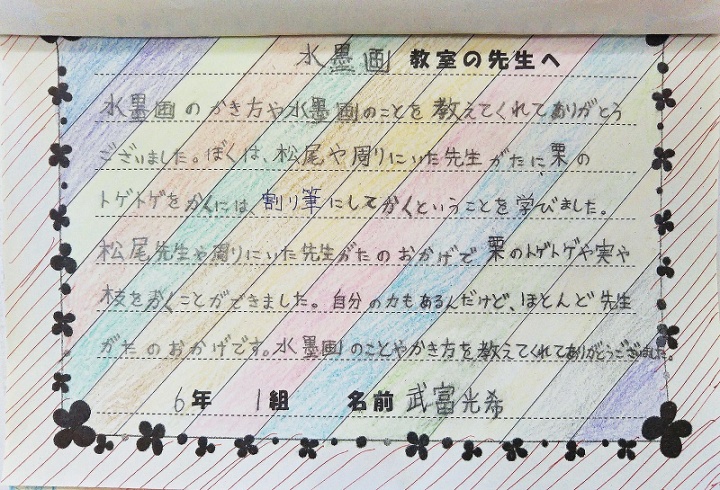 水墨画 教室の先生へ
水墨画のかき方や水墨画のことを教えてくれてありがとう
ございました。ぼくは、松尾や周りにいた先生がたに、栗の
トゲトゲをかくには、割り筆にしてかくということを学びました。
松尾先生や周りにいた先生がたのおかげで栗のトゲトゲや実や
枝をかくことができました。自分の力もあるんだけど、ほとんど先生
がたのおかげです。水墨画のことやかき方を教えてくれてありがとうございました。
6年 1組 名前 武富光希